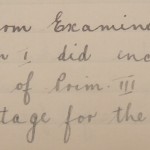 rom Examina
n I did inc
of Prim. III
tage for the